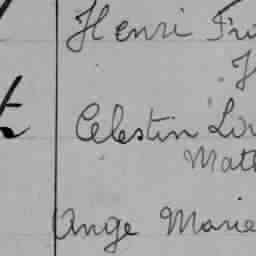 Henri Fra
Celestin Lou
Math
Ange Marie